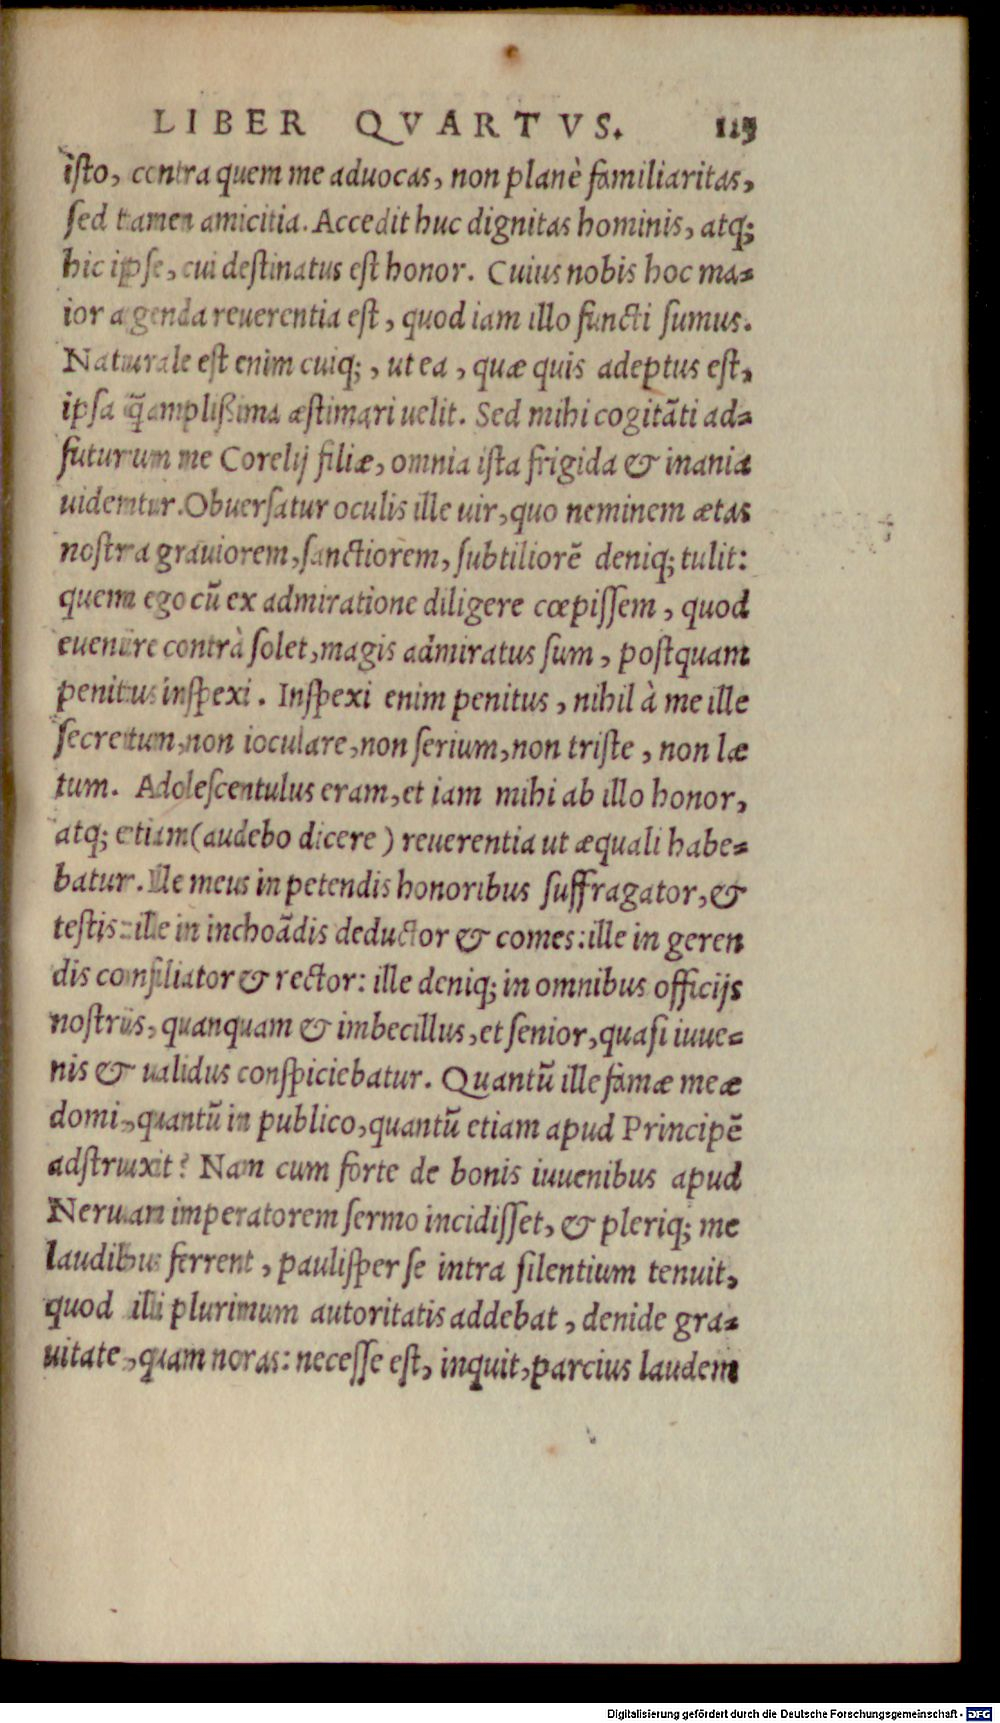 LIBER QVARTVS. 115
isto, contra quem me aduocas, non planè familiaritas,
sed tamen amicitia. Accedit huc dignitas hominis, atq;
hic ipse, cui destinatus est honor. Cuius nobis hoc ma-
ior agenda reuerentia est, quod iam illo functi sumus.
Naturale est enim cuiq;, ut ea, quæ quis adeptus est,
ipsa q̃ amplißima æstimari uelit. Sed mihi cogitāti ad-
futurum me Corelij filiæ, omnia ista frigida & inania
uidentur. Obuersatur oculis ille uir, quo neminem ætas
nostra grauiorem, sanctiorem, subtiliorē deniq; tulit:
quem ego cū ex admiratione diligere cœpissem, quod
euenire contrà solet, magis admiratus sum, postquam
penitus inspexi. Inspexi enim penitus, nihil à me ille
secretum, non ioculare, non serium, non triste, non læ
tum. Adolescentulus eram, et iam mihi ab illo honor,
atq; etiam (audebo dicere) reuerentia ut æquali habe-
batur. Ille meus in petendis honoribus suffragator, &
testis: ille in inchoādis deductor & comes: ille in geren
dis consiliator & rector: ille deniq; in omnibus officijs
nostris, quanquam & imbecillus, et senior, quasi iuue-
nis & ualidus conspiciebatur. Quantū ille famæ meæ
domi, quantū in publico, quantū etiam apud Principē
adstruxit? Nam cum forte de bonis iuuenibus apud
Neruam imperatorem sermo incidisset, & pleriq; me
laudibus ferrent, paulisper se intra silentium tenuit,
quod illi plurimum autoritatis addebat, denide gra-
uitate, quam noras: necesse est, inquit, parcius laudem
Digitalisierung gefördert durch die Deutsche Forschungsgemeinschaft - DFG